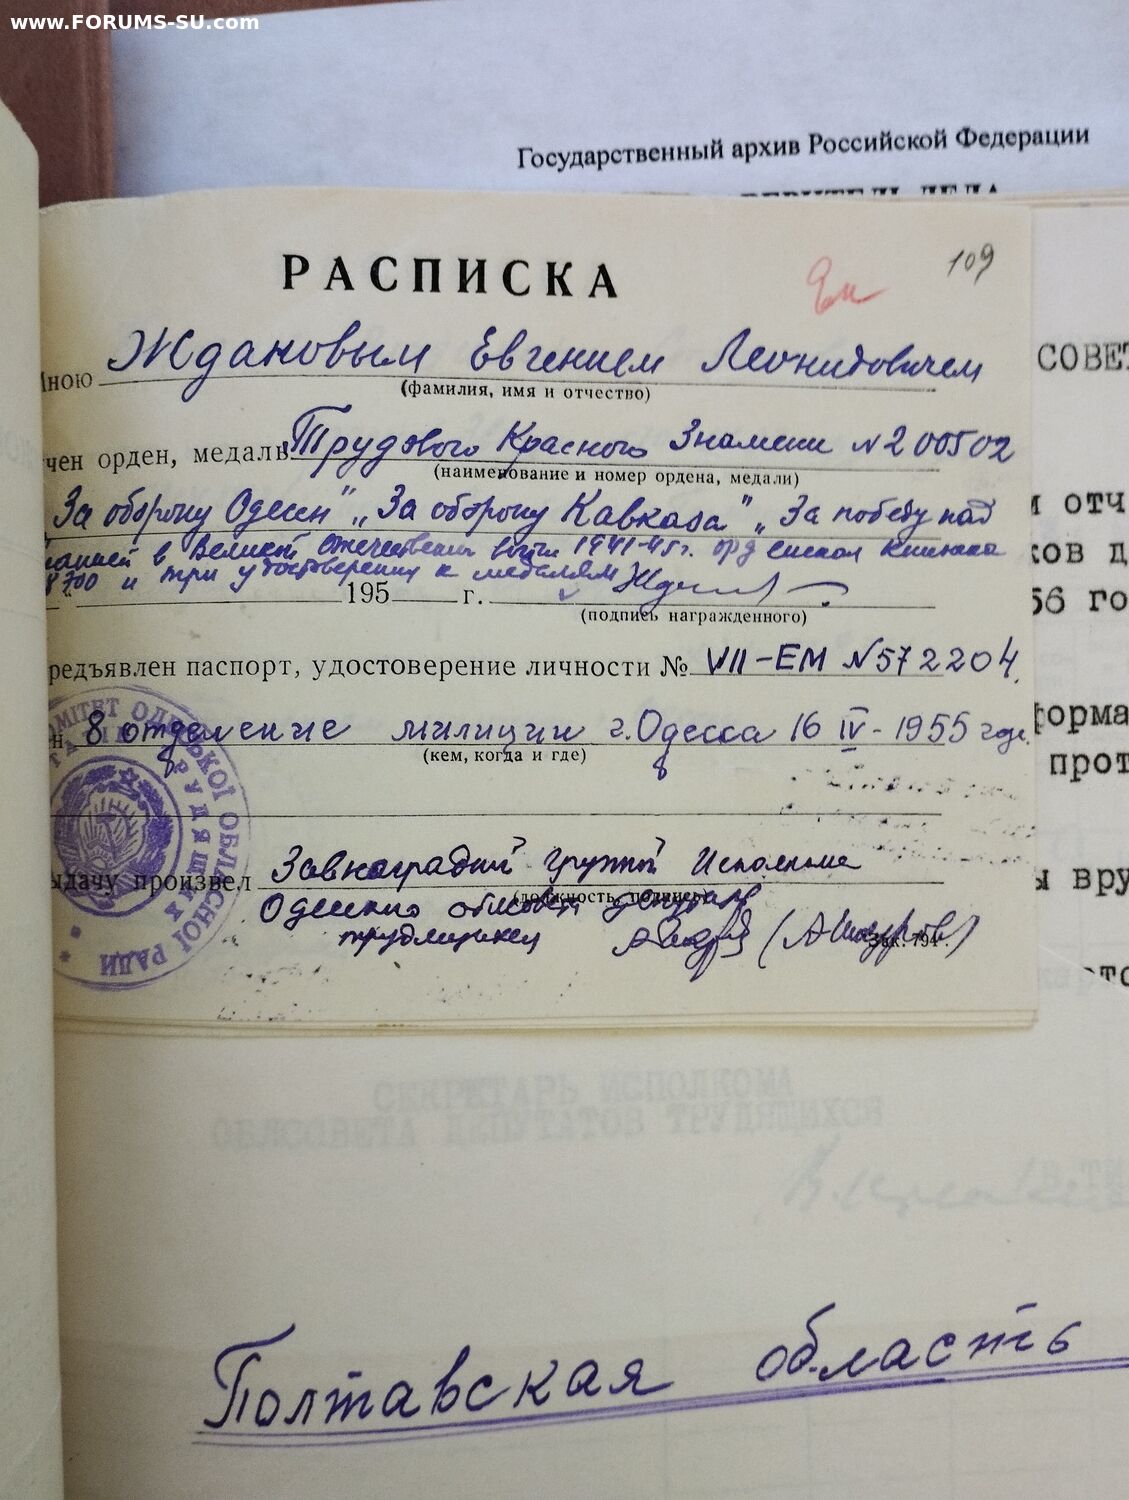 www.FORUMS-SU.com
Государственный архив Российской Федерации
РАСПИСКА
109
Мною Ждановым Евгением Леонидовичем
(фамилия, имя и отчество)
СОВЕТ
чен орден, медаль Трудового Красного Знамени №200502
(наименование и номер ордена, медали)
За оборону Одессы" „За оборону Кавказа" „За победу над
м отч
манией в Великой Отечественной войне 1941-45 г. орденская книжка
ков д
8700 и три удостоверения к медалям
195 г.
56 го
(подпись награжденного)
редъявлен паспорт, удостоверение личности № VII-ЕМ №572204
форма
н 8 отделение милиции г. Одесса 16 IV-1955 года
(кем, когда и где)
прот
ыдачу произвел Завнаградной группой Исполкома
ы вру
(должность, подпись)
Одесского облсовета депутатов
трудящихся
Зак. 794.
КОМІТЕТ ОДЕСЬКОЇ ОБЛАСНОЇ РАДИ
ТРУДЯЩИХ
СЕКРЕТАРЬ ИСПОЛКОМА
ОБЛСОВЕТА ДЕПУТАТОВ ТРУДЯЩИХСЯ
Полтавская область